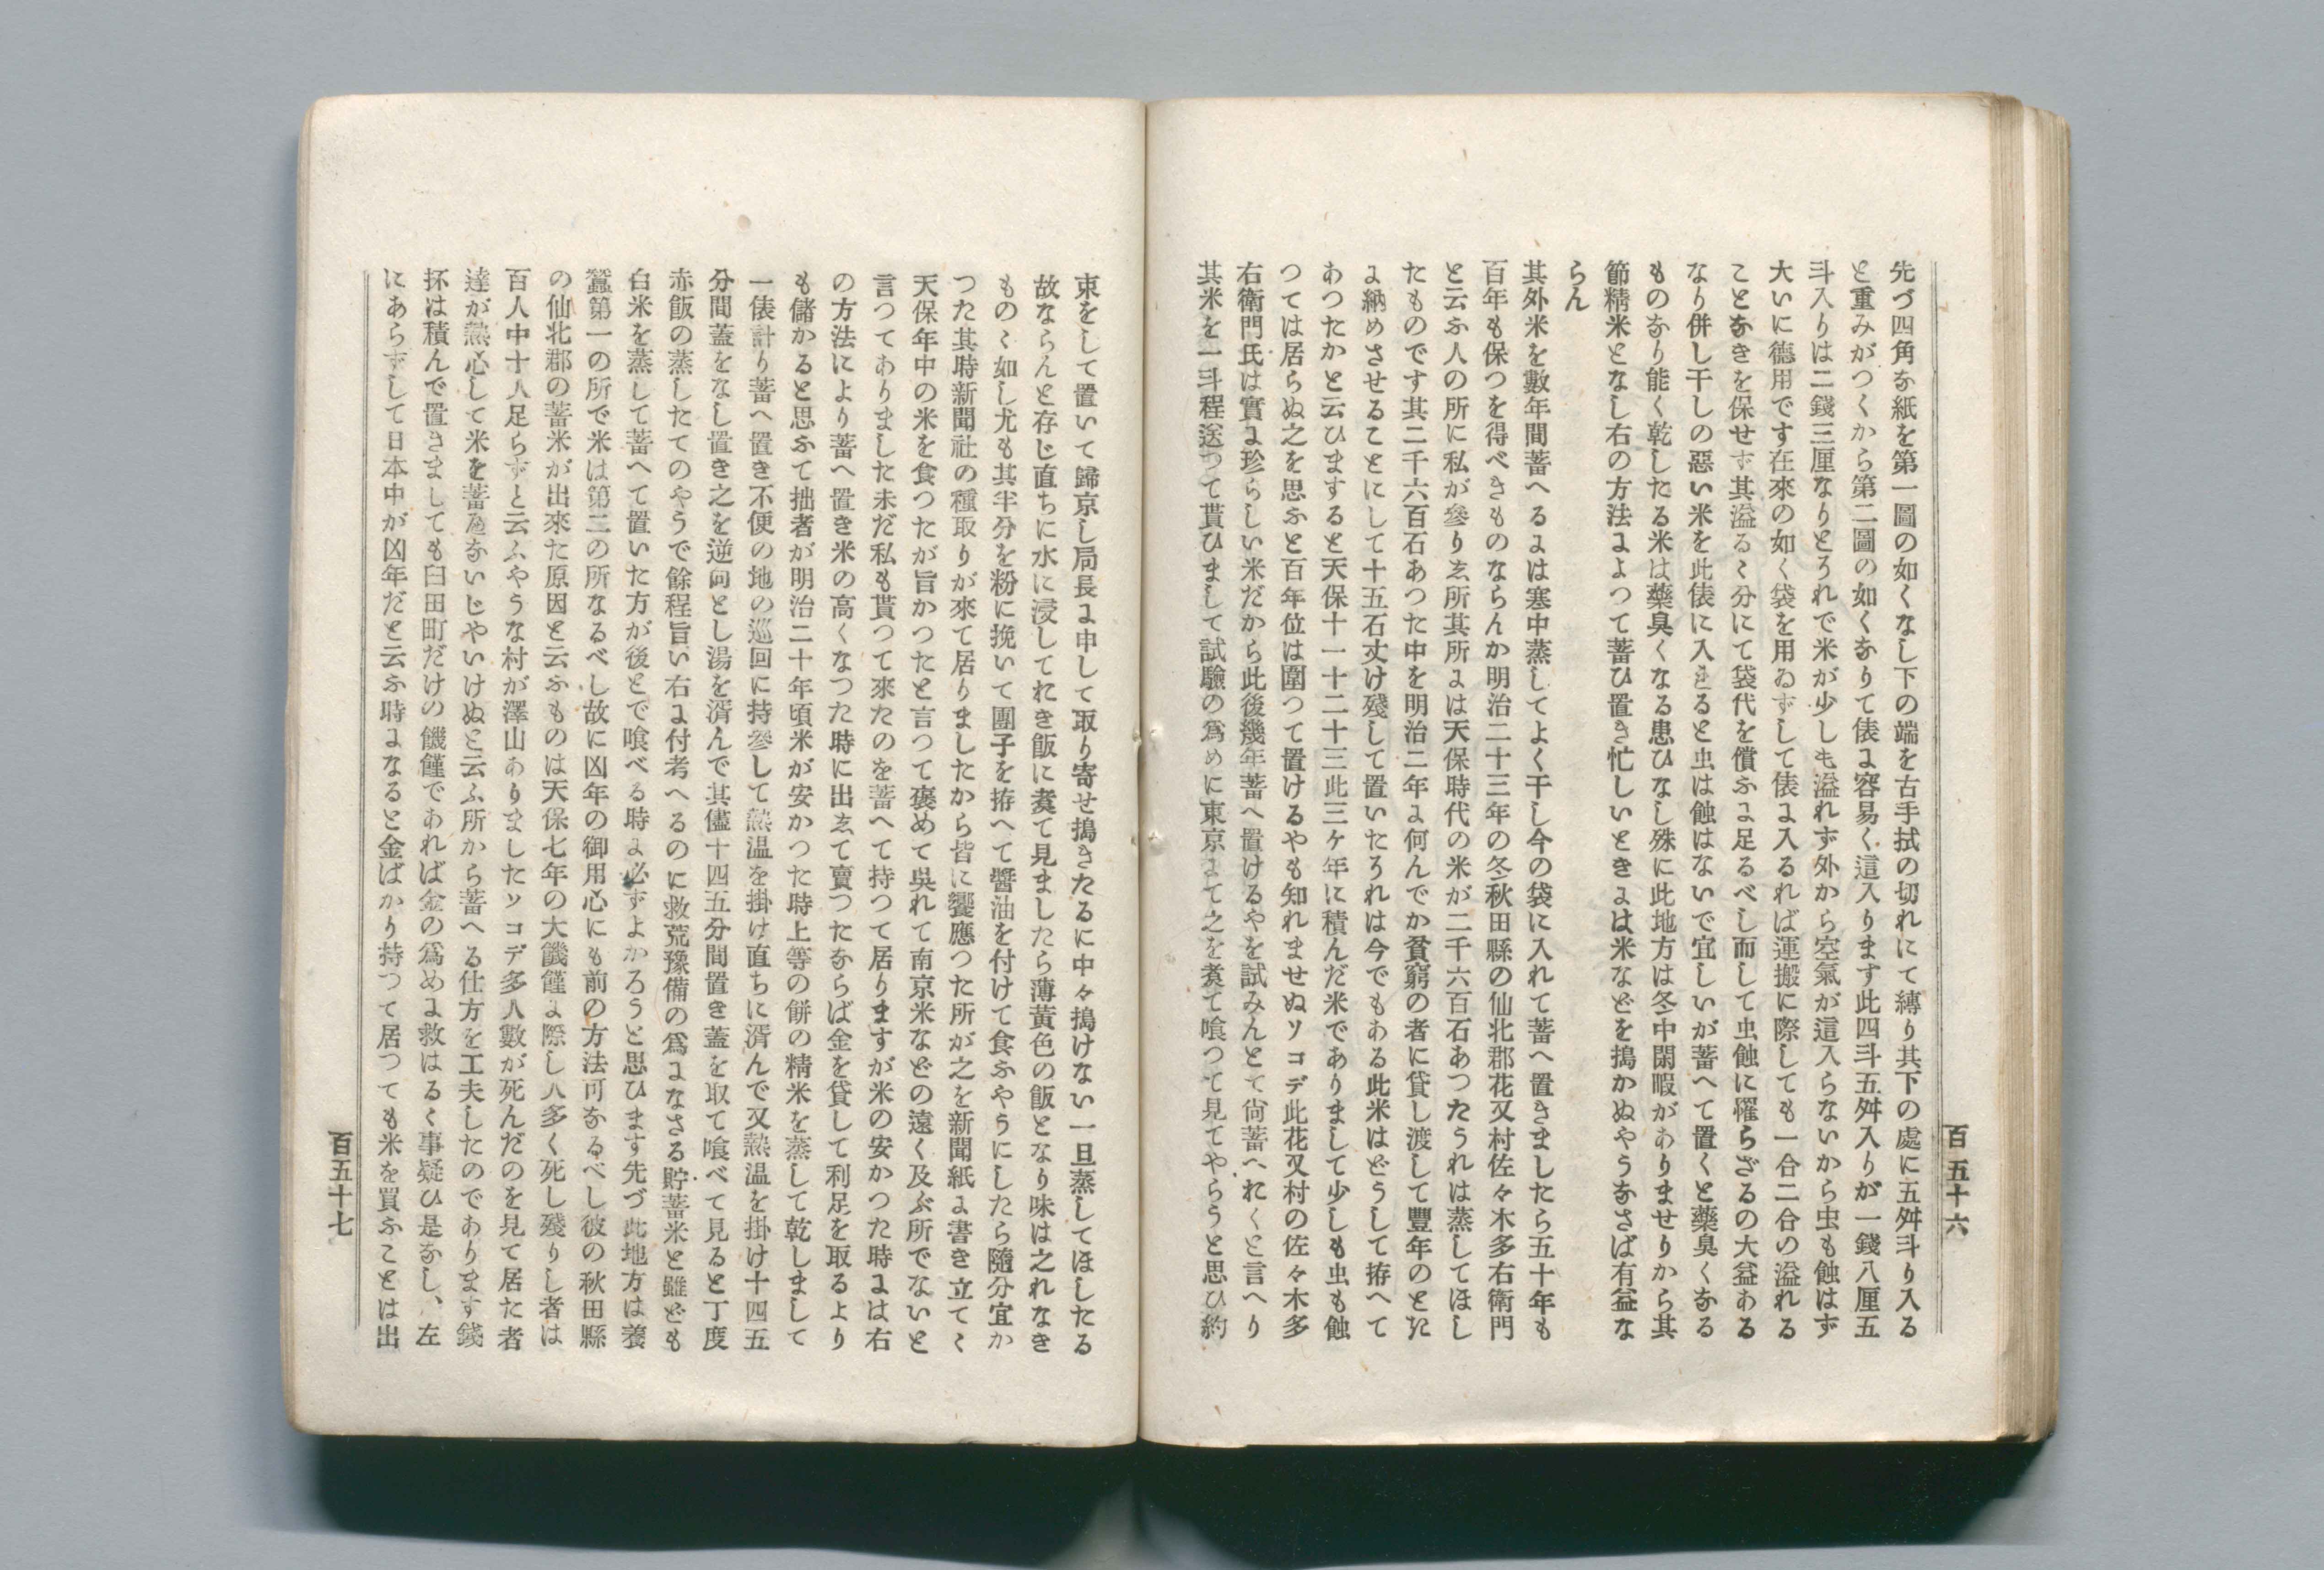 百五十六
先づ四角な紙を第一圖の如くなし下の端を古手拭の切れにて縛り其下の處に五舛斗り入る
と重みがつくから第二圖の如くなりて俵に容易く這入ります此四斗五舛入りが一錢八厘五
斗入りは二錢三厘なりとそれで米が少しも溢れず外から空氣が這入らないから虫も蝕はず
大いに德用です在來の如く袋を用ゐずして俵に入るれば運搬に際しても一合二合の溢れる
ことなきを保せず其溢るゝ分にて袋代を償ふに足るべし而して虫蝕に罹らざるの大益ある
なり併し干しの惡い米を此俵に入れると虫は蝕はないで宜しいが蓄へて置くと藥臭くなる
ものなり能く乾したる米は藥臭くなる患ひなし殊に此地方は冬中閑暇がありませりから其
節精米となし右の方法によつて蓄ひ置き忙しいときには米などを搗かぬやうなさば有益な
らん
其外米を數年間蓄へるには寒中蒸してよく干し今の袋に入れて蓄へ置きましたら五十年も
百年も保つを得べきものならんか明治二十三年の冬秋田縣の仙北郡花又村佐々木多右衛門
と云ふ人の所に私が參りゑ所其所には天保時代の米が二千六百石あつたそれは蒸してほし
たものです其二千六百石あつた中を明治二年に何んでか貧窮の者に貸し渡して豐年のとき
に納めさせることにして十五石丈け殘して置いたそれは今でもある此米はどうして拵へて
あつたかと云ひますると天保十一十二十三此三ケ年に積んだ米でありまして少しも虫も蝕
つては居らぬ之を思ふと百年位は圍つて置けるやも知れませぬソコデ此花又村の佐々木多
右衛門氏は實に珍らしい米だから此後幾年蓄へ置けるやを試みんとて尙蓄へおくと言へり
其米を一斗程送つて貰ひまして試驗の爲めに東京にて之を煑て喰つて見てやらうと思ひ約
束をして置いて歸京し局長に申して取り寄せ搗きたるに中々搗けない一旦蒸してほしたる
故ならんと存じ直ちに水に浸しておき飯に煑て見ましたら薄黃色の飯となり味は之れなき
ものゝ如し尤も其半分を粉に挽いて團子を拵へて醬油を付けて食ふやうにしたら隨分宜か
つた其時新聞社の種取りが來て居りましたから皆に饗應つた所が之を新聞紙に書き立てゝ
天保年中の米を食つたが旨かつたと言つて褒めて吳れて南京米などの遠く及ぶ所でないと
言つてありました未だ私も貰つて來たのを蓄へて持つて居りますが米の安かつた時には右
の方法により蓄へ置き米の高くなつた時に出ゑて賣つたならば金を貸して利足を取るより
も儲かると思ふて拙者が明治二十年頃米が安かつた時上等の餅の精米を蒸して乾しまして
一俵計り蓄へ置き不便の地の巡回に持參して熱温を掛け直ちに湑んで又熱温を掛け十四五
分間蓋をなし置き之を逆向とし湯を湑んで其儘十四五分間置き蓋を取て喰べて見ると丁度
赤飯の蒸したてのやうで餘程旨い右に付考へるのに救荒豫備の爲になさる貯蓄米と雖ども
白米を蒸して蓄へて置いた方が後とで喰べる時に必ずよかろうと思ひます先づ此地方は養
蠶第一の所で米は第二の所なるべし故に凶年の御用心にも前の方法可なるべし彼の秋田縣
の仙北郡の蓄米が出來た原因と云ふものは天保七年の大饑饉に際し人多く死し殘りし者は
百人中十人足らずと云ふやうな村が澤山ありましたソコデ多人數が死んだのを見て居た者
達が熱心して米を蓄座ないじやいけぬと云ふ所から蓄へる仕方を工夫したのであります錢
抔は積んで置きましても臼田町だけの饑饉であれば金の爲めに救はるく事疑ひ是なし、左
にあらずして日本中が凶年だと云ふ時になると金ばかり持つて居つても米を買ふことは出
百五十七